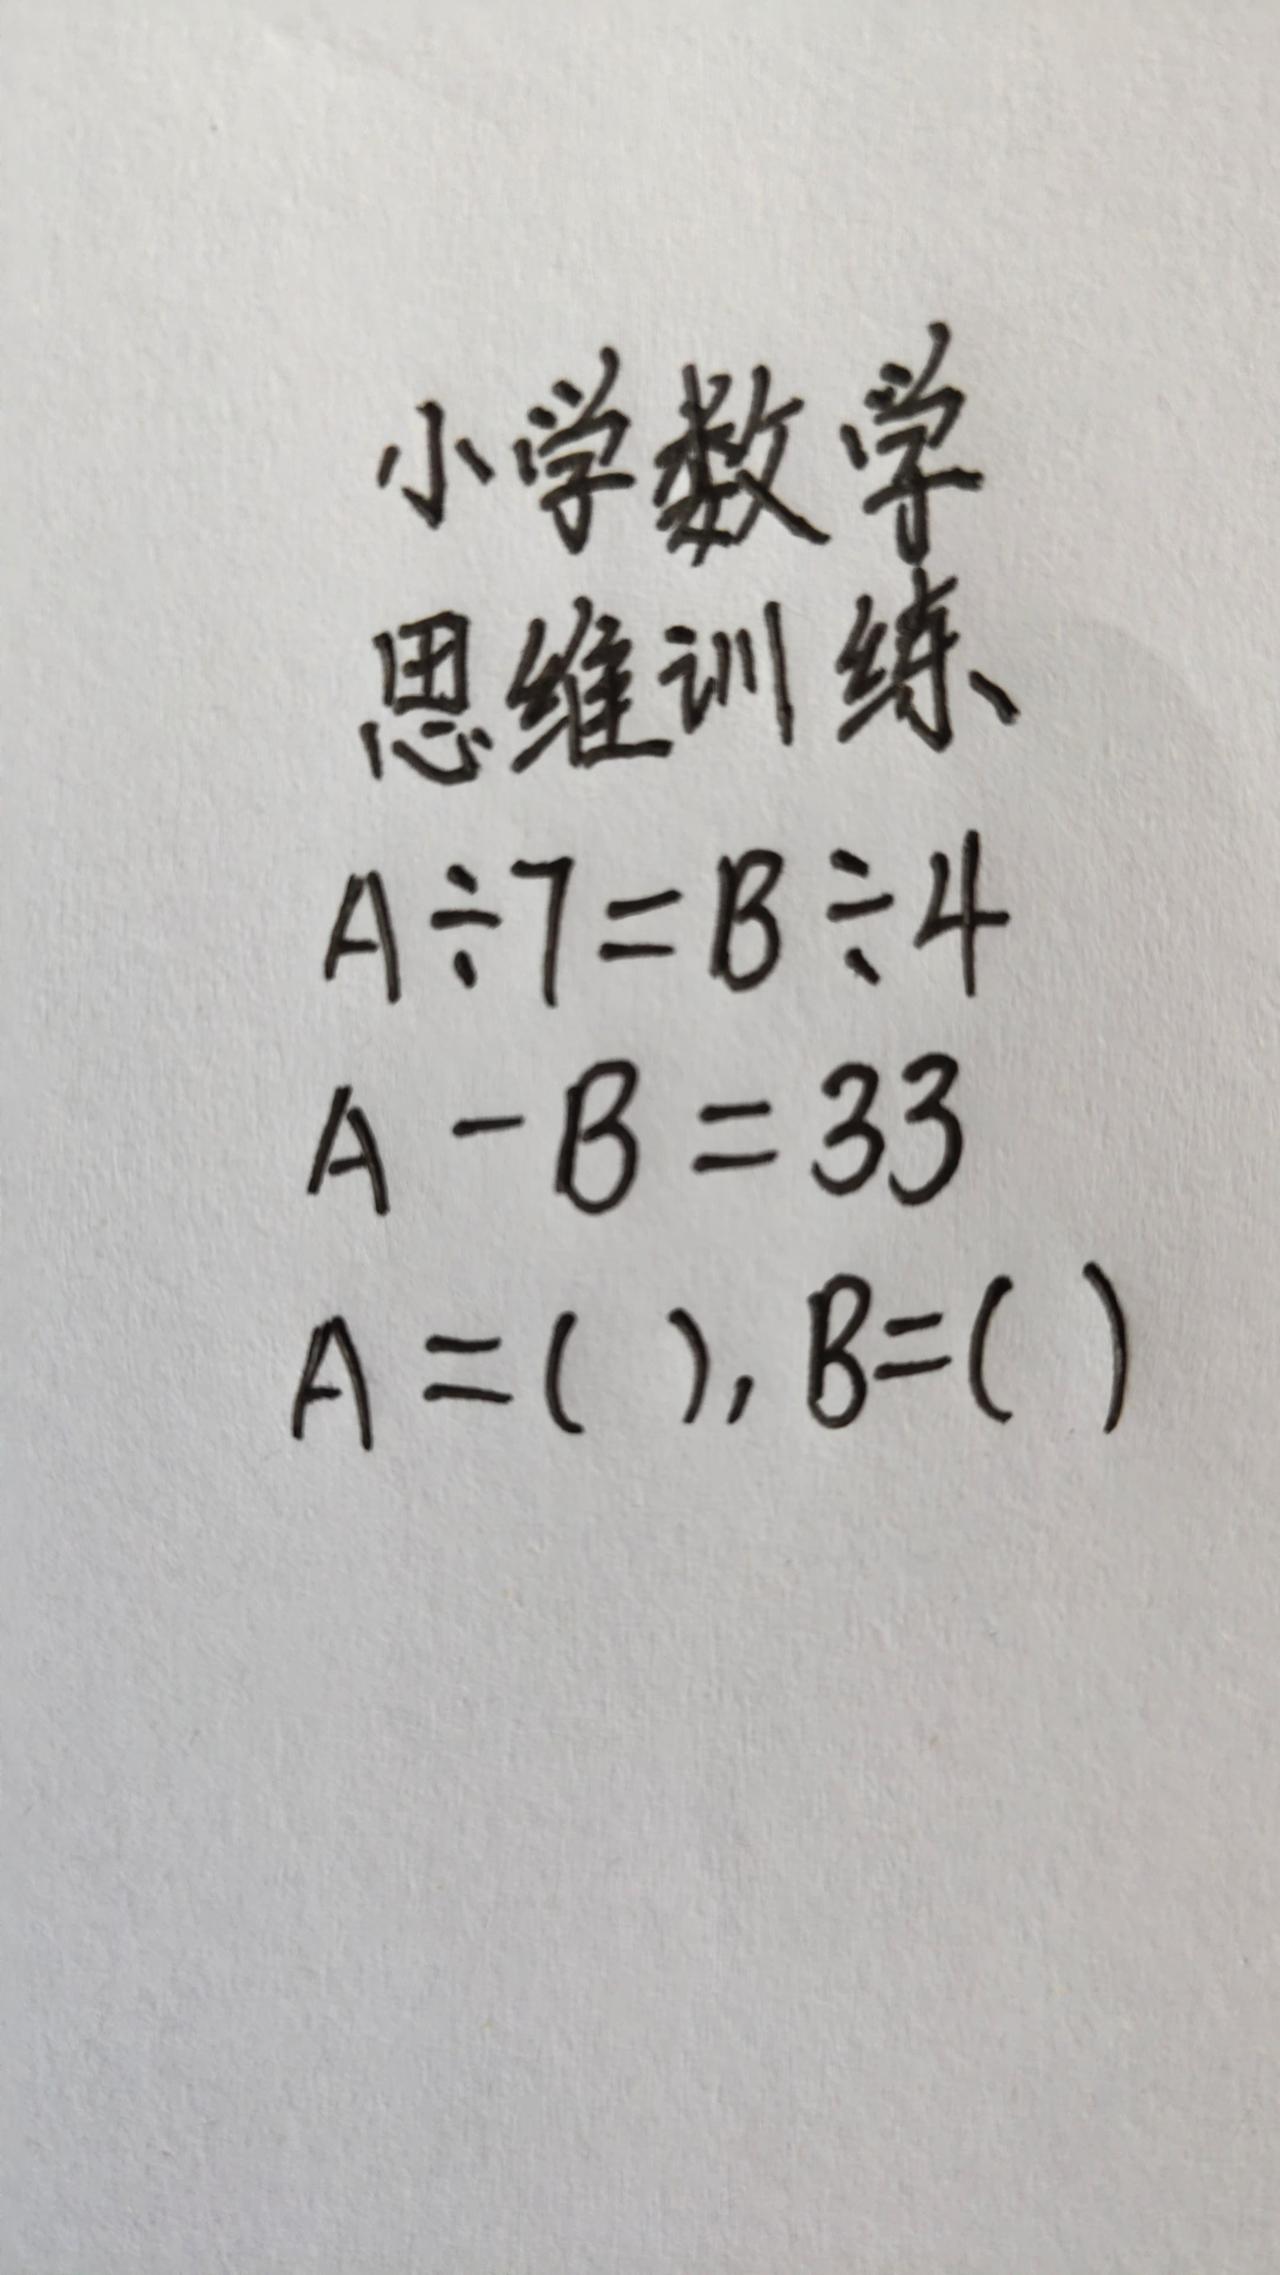 小学数学
思维训练
A÷7=B÷4
A-B=33
A=( ),B=( )